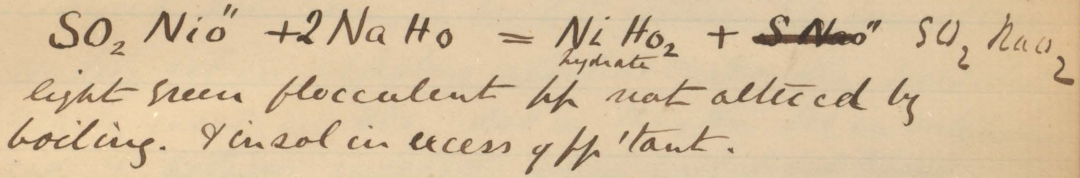 SO₂ Niö" + 2NaHo = NiHo₂ + SO₂ Nao₂
hydrate
light green flocculent pp not altered by
boiling. & insol in excess of pp'tant.